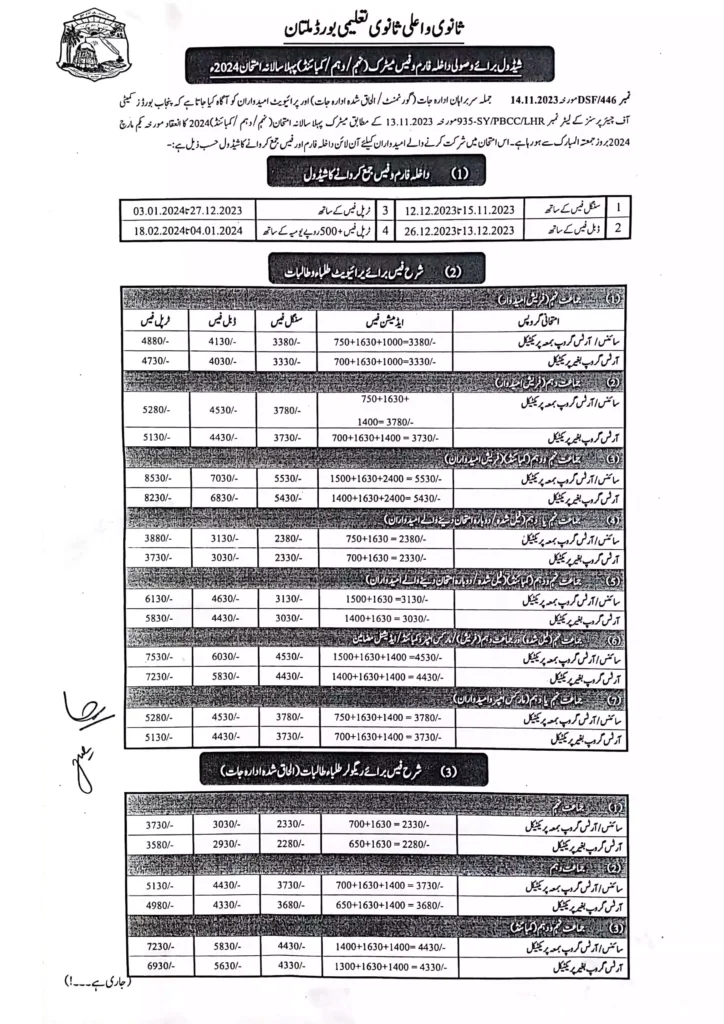 ثانوی و اعلیٰ ثانوی تعلیمی بورڈ ملتان
شیڈول برائے وصولی داخلہ فارم و فیس میٹرک (نہم / دہم / کمبائنڈ) پہلا سالانہ امتحان 2024ء
نمبر DSF/446 مورخہ 14.11.2023 جملہ سربراہان ادارہ جات (گورنمنٹ / الحاق شدہ ادارہ جات) اور پرائیویٹ امیدواران کو آگاہ کیا جاتا ہے کہ پنجاب بورڈز کمیٹی
آف چیئر پرسنز کے لیٹر نمبر 935-SY/PBCC/LHR مورخہ 13.11.2023 کے مطابق میٹرک پہلا سالانہ امتحان (نہم / دہم / کمبائنڈ) 2024 کا انعقاد مورخہ یکم مارچ
2024 بروز جمعتہ المبارک سے ہورہا ہے۔ اس امتحان میں شرکت کرنے والے امیدواران کیلئے آن لائن داخلہ فارم اور فیس جمع کروانے کا شیڈول حسب ذیل ہے:-
(1) داخلہ فارم و فیس جمع کروانے کا شیڈول
1 سنگل فیس کے ساتھ 15.11.2023 تا 12.12.2023 3 ٹرپل فیس کے ساتھ 27.12.2023 تا 03.01.2024
2 ڈبل فیس کے ساتھ 13.12.2023 تا 26.12.2023 4 ٹرپل فیس +500 روپے یومیہ کے ساتھ 04.01.2024 تا 18.02.2024
(2) شرح فیس برائے پرائیویٹ طلباء و طالبات
(1) جماعت نہم (فریش امیدوار)
امتحانی گروپس ایڈمیشن فیس سنگل فیس ڈبل فیس ٹرپل فیس
سائنس / آرٹس گروپ بمعہ پریکٹیکل 750+1630+1000=3380/- 3380/- 4130/- 4880/-
آرٹس گروپ بغیر پریکٹیکل 700+1630+1000=3330/- 3330/- 4030/- 4730/-
(2) جماعت دہم (فریش امیدوار)
سائنس / آرٹس گروپ بمعہ پریکٹیکل 750+1630+ 1400= 3780/- 3780/- 4530/- 5280/-
آرٹس گروپ بغیر پریکٹیکل 700+1630+1400 = 3730/- 3730/- 4430/- 5130/-
(3) جماعت نہم و دہم (کمبائنڈ) (فریش امیدواران)
سائنس / آرٹس گروپ بمعہ پریکٹیکل 1500+1630+2400 = 5530/- 5530/- 7030/- 8530/-
آرٹس گروپ بغیر پریکٹیکل 1400+1630+2400= 5430/- 5430/- 6830/- 8230/-
(4) جماعت نہم یا دہم (فیل شدہ / دوبارہ امتحان دینے والے امیدواران)
سائنس / آرٹس گروپ بمعہ پریکٹیکل 750+1630 = 2380/- 2380/- 3130/- 3880/-
آرٹس گروپ بغیر پریکٹیکل 700+1630 = 2330/- 2330/- 3030/- 3730/-
(5) جماعت نہم و دہم (کمبائنڈ) (فیل شدہ / دوبارہ امتحان دینے والے امیدواران)
سائنس / آرٹس گروپ بمعہ پریکٹیکل 1500+1630 =3130/- 3130/- 4630/- 6130/-
آرٹس گروپ بغیر پریکٹیکل 1400+1630 = 3030/- 3030/- 4430/- 5830/-
(6) جماعت نہم (فیل شدہ) اور جماعت دہم (فریش) / مارکس امپرو کمبائنڈ / ایڈیشنل مضامین
سائنس / آرٹس گروپ بمعہ پریکٹیکل 1500+1630+1400 =4530/- 4530/- 6030/- 7530/-
آرٹس گروپ بغیر پریکٹیکل 1400+1630+1400 = 4430/- 4430/- 5830/- 7230/-
(7) جماعت نہم یا دہم (مارکس امپرو امیدواران)
سائنس / آرٹس گروپ بمعہ پریکٹیکل 750+1630+1400 = 3780/- 3780/- 4530/- 5280/-
آرٹس گروپ بغیر پریکٹیکل 700+1630+1400 = 3730/- 3730/- 4430/- 5130/-
(3) شرح فیس برائے ریگولر طلباء طالبات (الحاق شدہ ادارہ جات)
(1) جماعت نہم
سائنس / آرٹس گروپ بمعہ پریکٹیکل 700+1630 = 2330/- 2330/- 3030/- 3730/-
آرٹس گروپ بغیر پریکٹیکل 650+1630 = 2280/- 2280/- 2930/- 3580/-
(2) جماعت دہم
سائنس / آرٹس گروپ بمعہ پریکٹیکل 700+1630+1400 = 3730/- 3730/- 4430/- 5130/-
آرٹس گروپ بغیر پریکٹیکل 650+1630+1400 = 3680/- 3680/- 4330/- 4980/-
(3) جماعت نہم و دہم (کمبائنڈ)
سائنس / آرٹس گروپ بمعہ پریکٹیکل 1400+1630+1400= 4430/- 4430/- 5830/- 7230/-
آرٹس گروپ بغیر پریکٹیکل 1300+1630+1400 = 4330/- 4330/- 5630/- 6930/-
(جاری ہے ۔۔۔!)